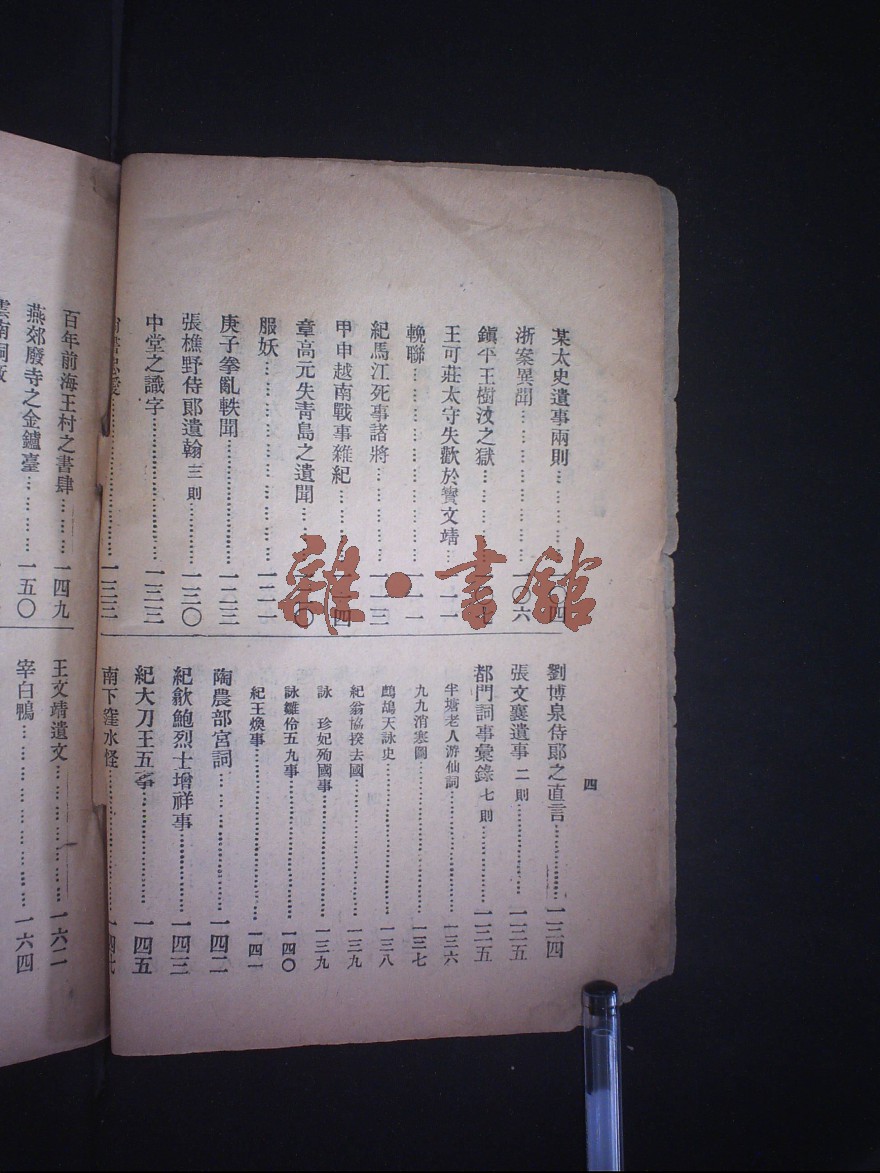 四
某太史遺事兩則…………一〇四
浙案異聞…………一〇六
鎮平王樹汶之獄…………一〇七
王可莊太守失歡於寶文靖……一一一
輓聯…………一一一
紀馬江死事諸將…………一一三
甲申越南戰事雜紀…………一一四
章高元失青島之遺聞……一二〇
服妖…………一二一
庚子拳亂軼聞…………一二三
張樵野侍郎遺翰 三則…………一三〇
中堂之識字…………一三三
…………一三三
劉博泉侍郎之直言…………一三四
張文襄遺事 二則…………一三五
都門詞事彙錄 七則…………一三五
半塘老人游仙詞…………一三六
九九消寒圖…………一三七
鷓鴣天詠史…………一三八
紀翁協揆去國…………一三九
詠 珍妃殉國事…………一三九
詠雛伶五九事…………一四〇
紀王煥事…………一四一
陶農部宮詞…………一四二
紀歙鮑烈士增祥事…………一四三
紀大刀王五事…………一四五
南下窪水怪…………一四七
百年前海王村之書肆…………一四九
燕郊廢寺之金鑪臺…………一五〇
雲南銅廠
王文靖遺文…………一六二
宰白鴨…………一六四
雜·書館